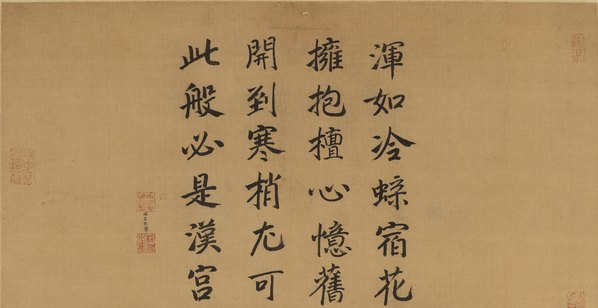 渾如冷蝶宿花
擁抱檀心憶舊
開到寒梢尤可
此般必是漢宮